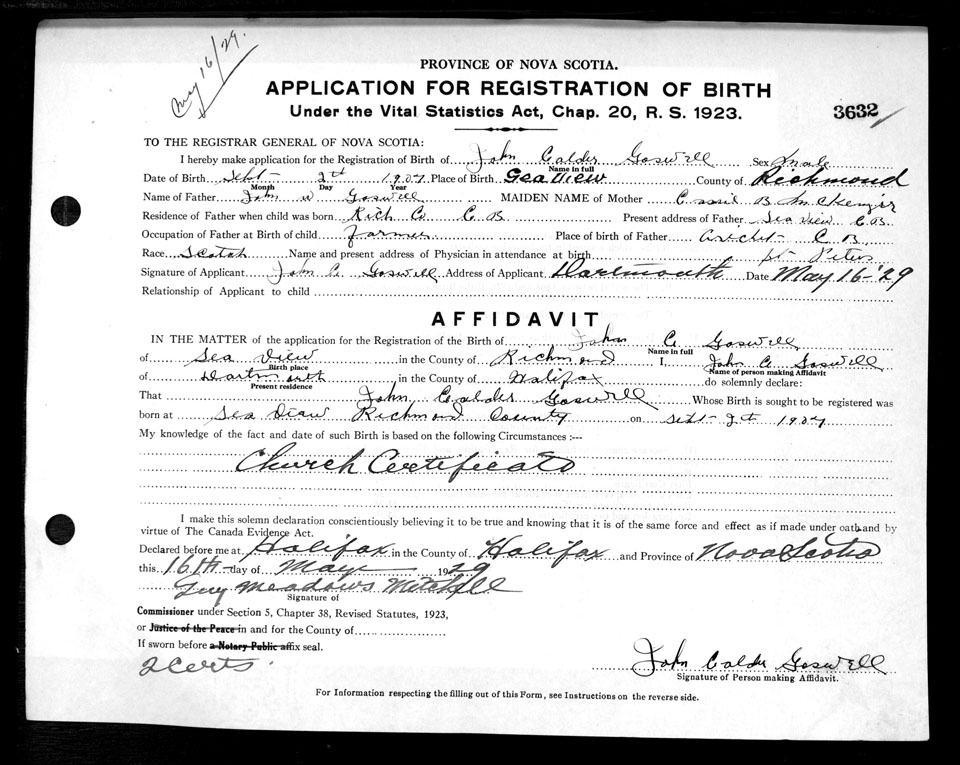 May 16/29.
PROVINCE OF NOVA SCOTIA.
APPLICATION FOR REGISTRATION OF BIRTH
Under the Vital Statistics Act, Chap. 20, R. S. 1923.
3632
TO THE REGISTRAR GENERAL OF NOVA SCOTIA:
I hereby make application for the Registration of Birth of John Calder Goswell Sex Male
Name in full
Date of Birth Sept 2th 1907 Place of Birth Sea View County of Richmond
Month Day Year
Name of Father John W Goswell MAIDEN NAME of Mother Cassie B McKenzie
Residence of Father when child was born Rich Co C.B Present address of Father Sea View C.B
Occupation of Father at Birth of child Farmer Place of birth of Father Arichat C B
Race Scotch Name and present address of Physician in attendance at birth St Peters
Signature of Applicant John C Goswell Address of Applicant Dartmouth Date May 16-'29
Relationship of Applicant to child
AFFIDAVIT
IN THE MATTER of the application for the Registration of Birth of John C. Goswell
Name in full
of Sea View in the County of Richmond I, John C Goswell
Birth place Name of person making Affidavit
of Dartmouth in the County of Halifax do solemnly declare:
Present residence
That John Calder Goswell Whose Birth is sought to be registered was
born at Sea View Richmond County on Sept 2th 1907
My knowledge of the fact and date of such Birth is based on the following Circumstances :—
Church Certificate
I make this solemn declaration conscientiously believing it to be true and knowing that it is of the same force and effect as if made under oath and by
virtue of The Canada Evidence Act.
Declared before me at Halifax in the County of Halifax and Province of Nova Scotia
this 16th day of May 1929
Guy Meadows Mitchell
Signature of
Commissioner under Section 5, Chapter 38, Revised Statutes, 1923,
or Justice of the Peace in and for the County of
If sworn before a Notary Public affix seal.
2 Certs.
John Calder Goswell
Signature of Person making Affidavit.
For Information respecting the filling out of this Form, see Instructions on the reverse side.